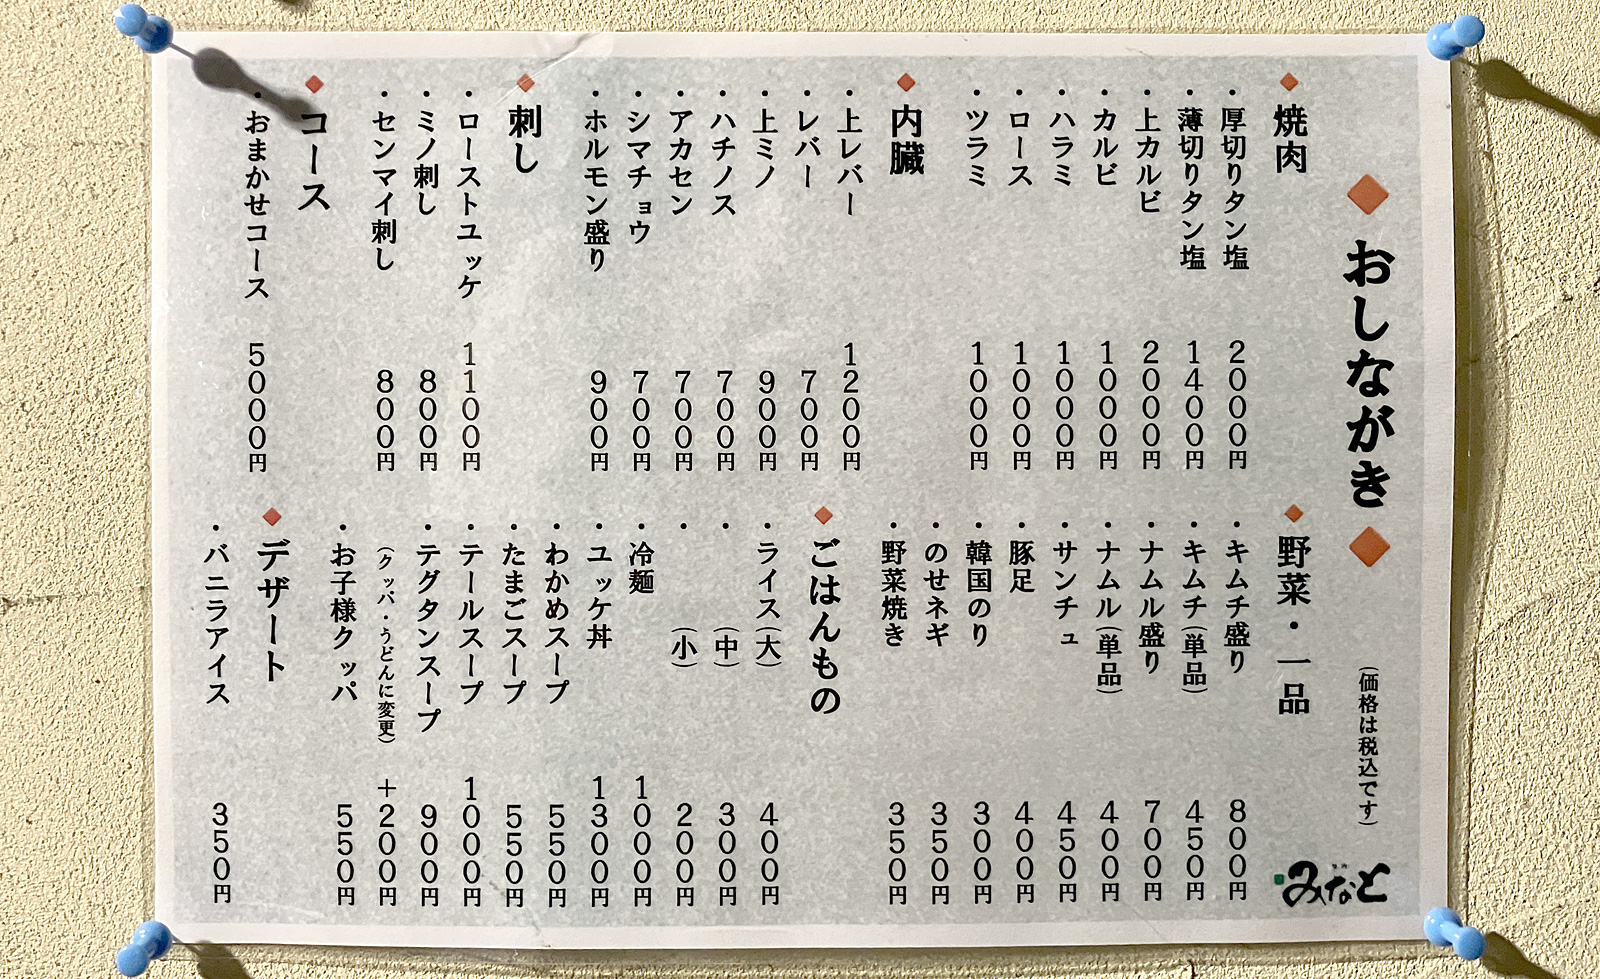 おしながき
(価格は税込です)
みなと
焼肉
・厚切りタン塩 2000円
・薄切りタン塩 1400円
・上カルビ 2000円
・カルビ 1000円
・ハラミ 1000円
・ロース 1000円
・ツラミ 1000円
内臓
・上レバー 1200円
・レバー 700円
・上ミノ 900円
・ハチノス 700円
・アカセン 700円
・シマチョウ 700円
・ホルモン盛り 900円
刺し
・ローストユッケ 1100円
・ミノ刺し 800円
・センマイ刺し 800円
コース
・おまかせコース 5000円
野菜・一品
・キムチ盛り 800円
・キムチ(単品) 450円
・ナムル盛り 700円
・ナムル(単品) 400円
・サンチュ 450円
・豚足 400円
・韓国のり 300円
・のせネギ 350円
・野菜焼き 350円
ごはんもの
・ライス(大) 400円
・(中) 300円
・(小) 200円
・冷麺 1000円
・ユッケ丼 1300円
・わかめスープ 550円
・たまごスープ 550円
・テールスープ 1000円
・テグタンスープ 900円
(クッパ・うどんに変更) +200円
・お子様クッパ 550円
デザート
・バニラアイス 350円